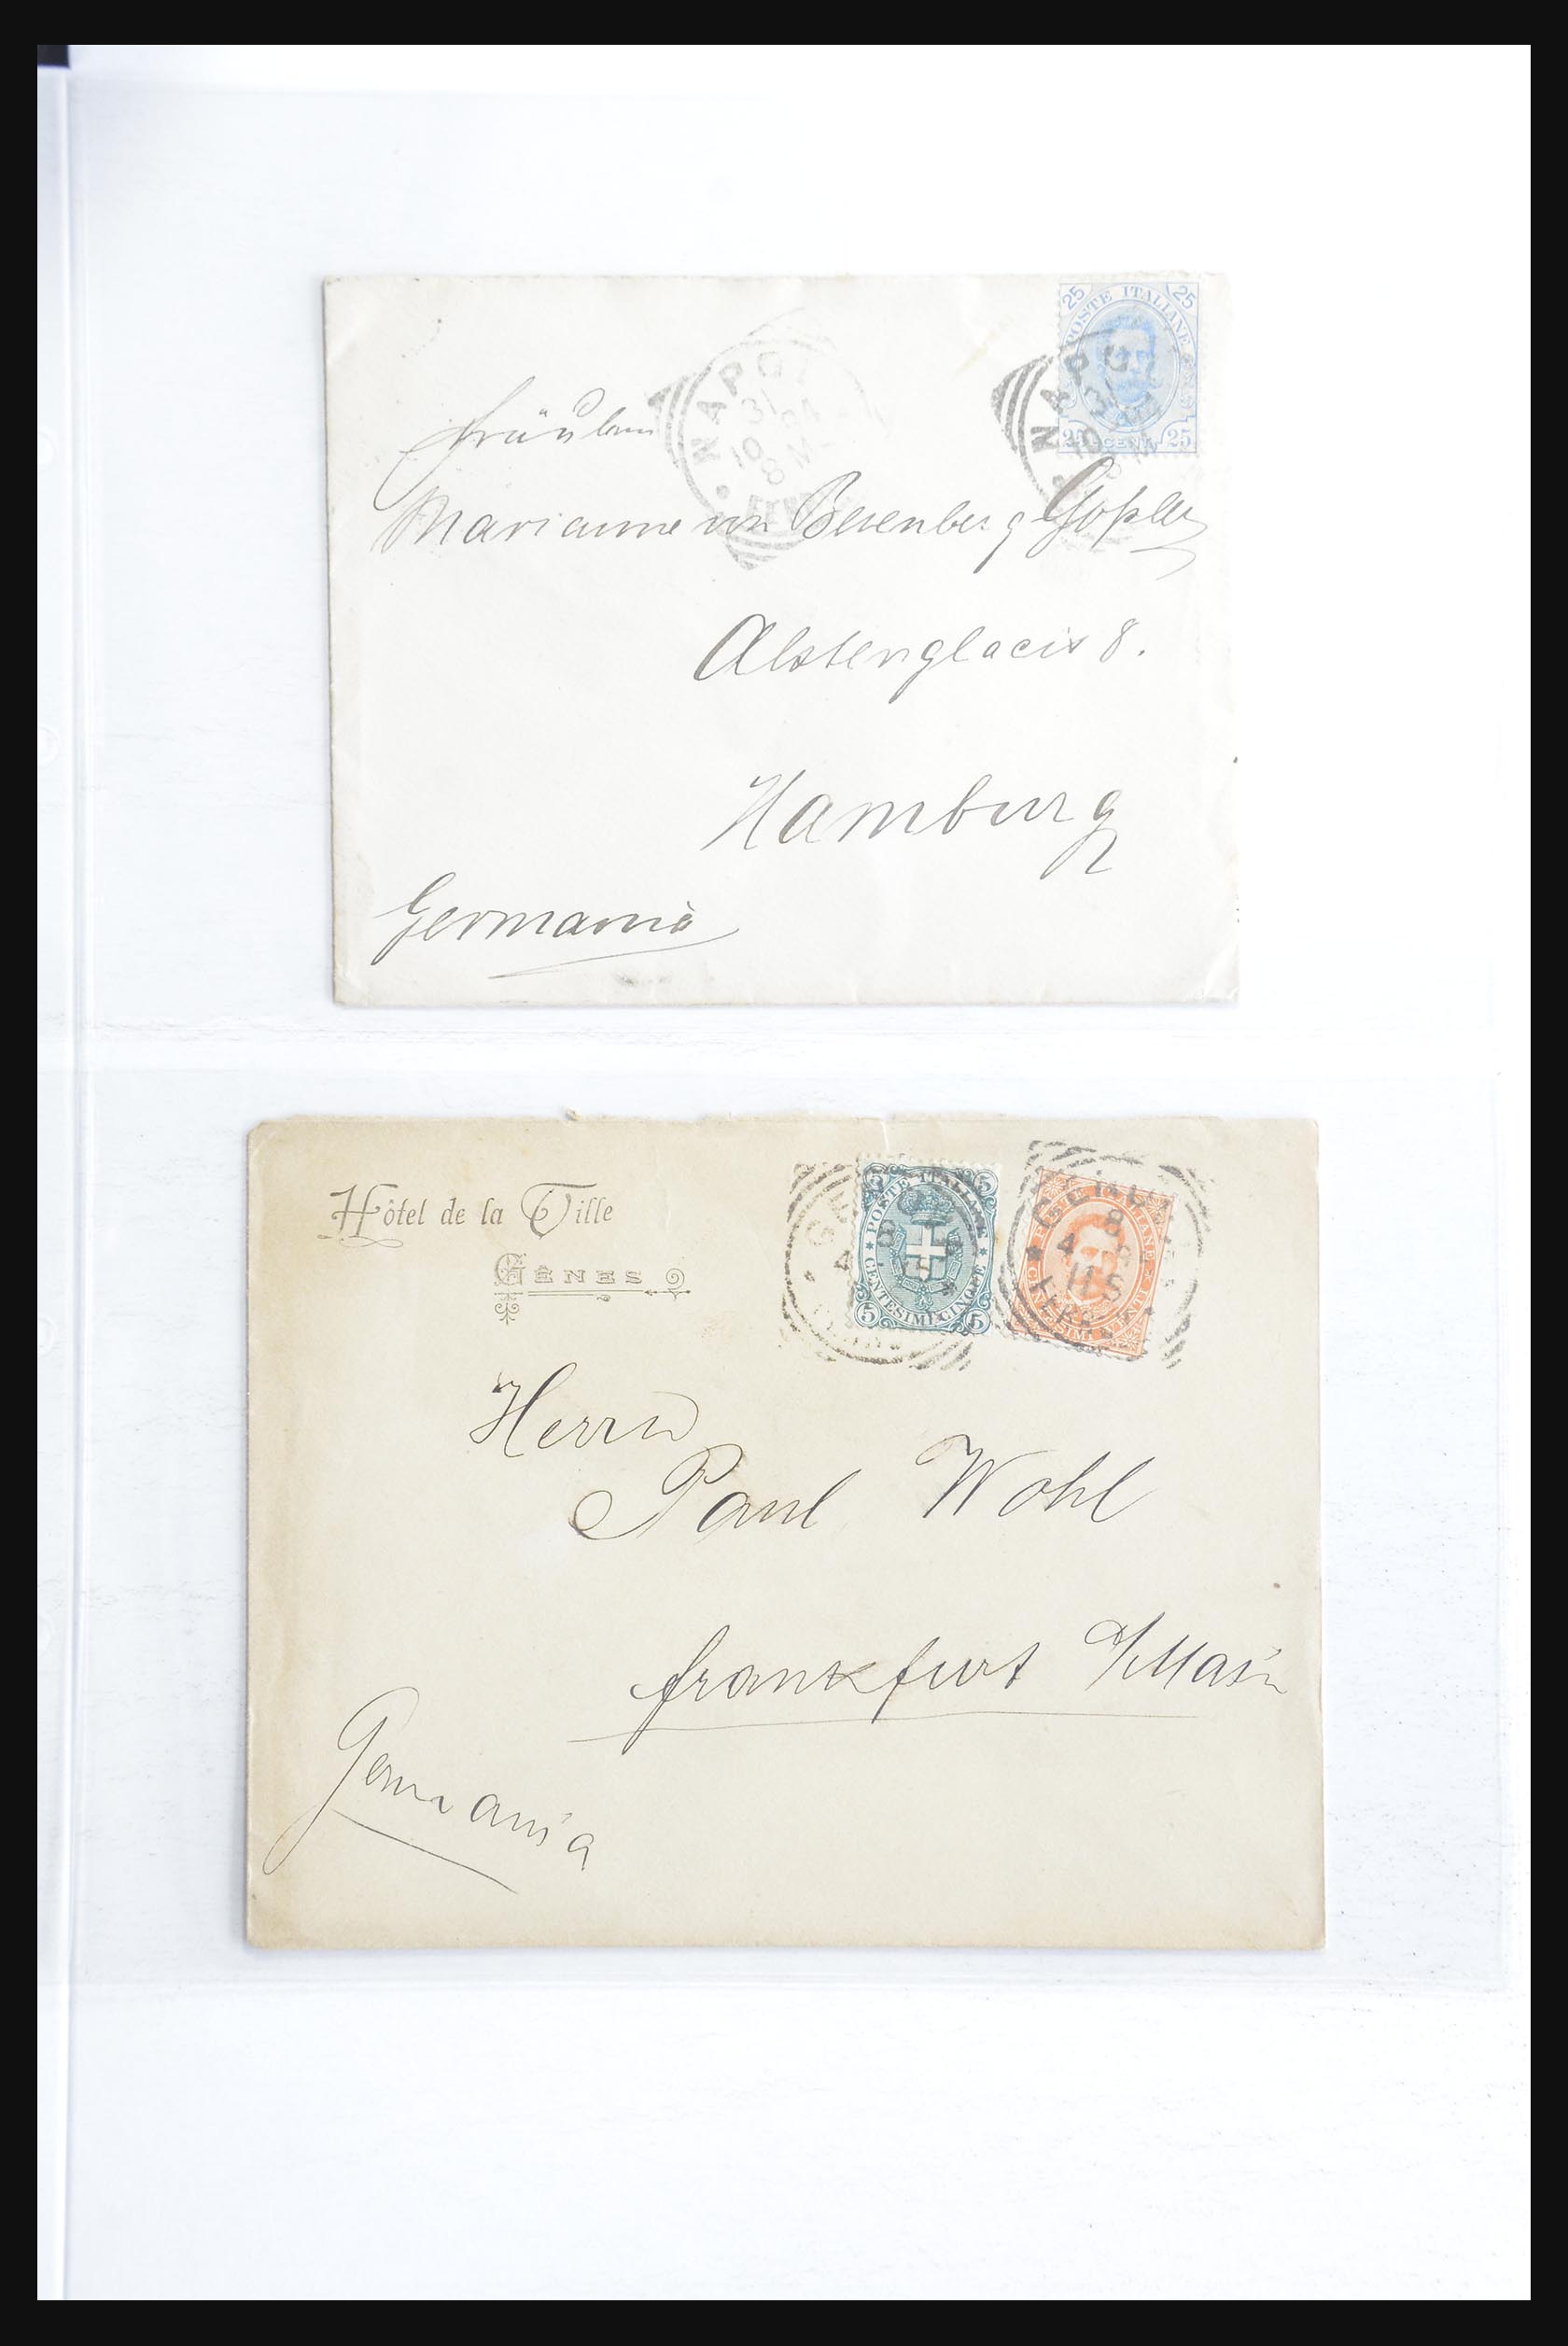 25 POSTE ITALIANE 25
25 CENT. 25
NAPOLI
31
10
8M
NAPO
Fräulein
Marianne von Besenberg Gossler
Alsterglacis 8.
Hamburg
Germania
Hôtel de la Ville
GÊNES
5 POSTE ITALIANE 5
5 CENTESIMI CINQUE 5
CENTESIMI VENTI
4
8
11S
FERRO
Herrn
Paul Wohl
Frankfurt a/Main
Germania